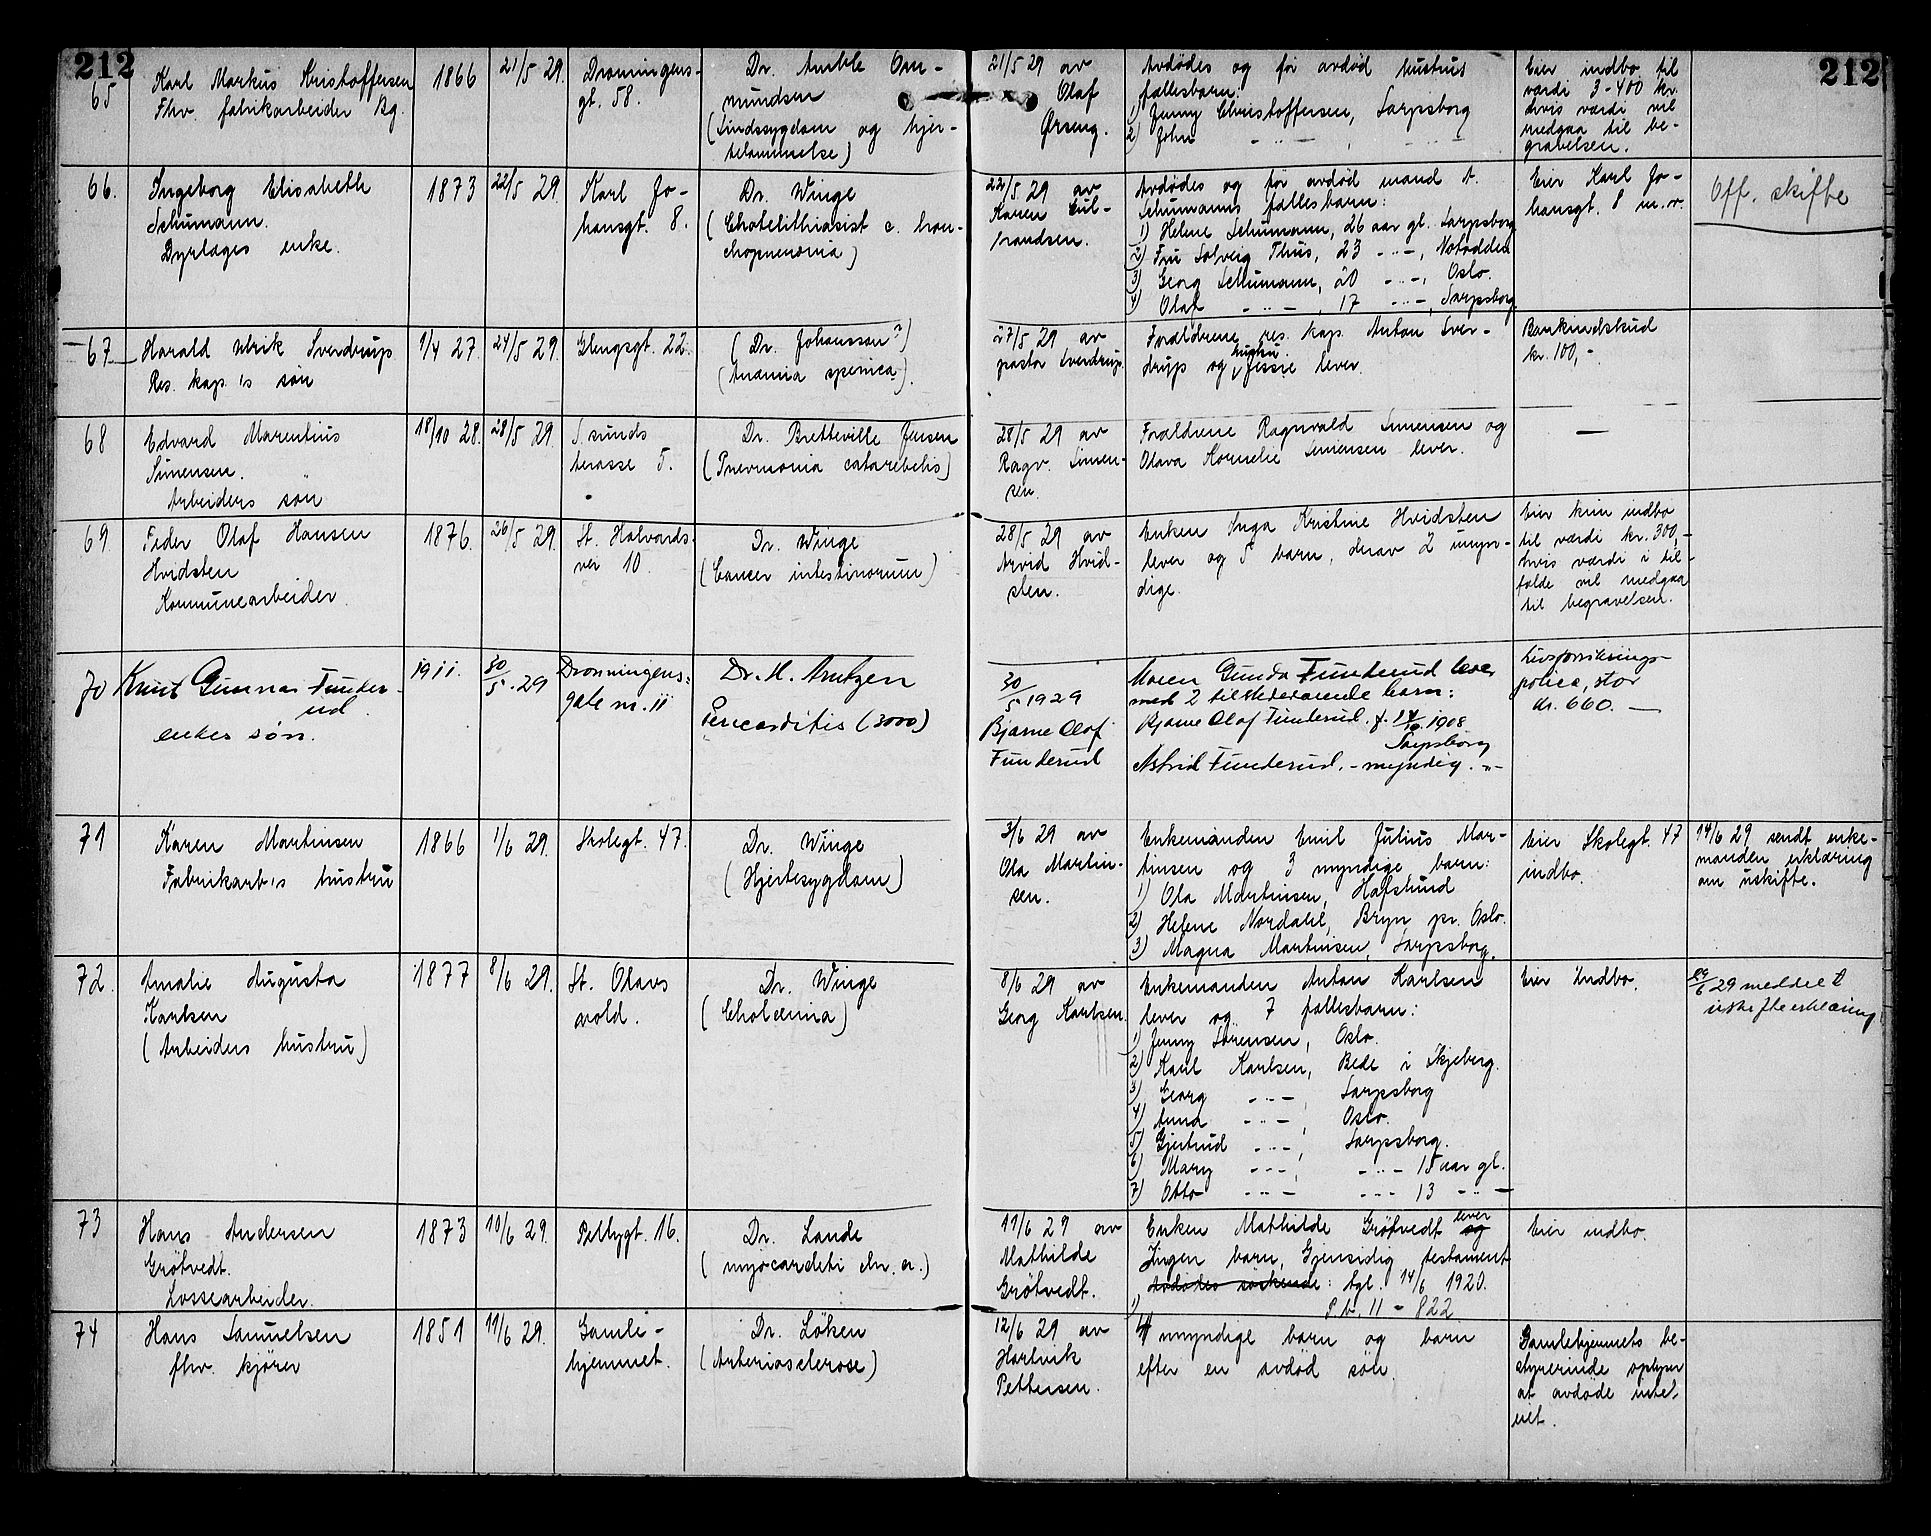 212
212
65
Karl Markus Kristoffersen
Fhv. fabrikarbeider Bg.
1866
21/5 29.
Dronningens-
gt. 58.
Dr. Anble Om-
mundsen
(Sindssygdom og hjer-
telammelse)
21/5 29 av
Olaf
Ørseng.
Avdødes og før avdød hustrus
fællesbarn:
1) Jenny Christoffersen, Sarpsborg
2) John -"- , -"-
Eier indbo til
værdi 3-400 kr.
hvis værdi vil
medgaa til be-
gravelsen.
66.
Ingeborg Elisabeth
Schumann.
Dyrlæges enke.
1873
22/5 29.
Karl Jo-
hansgt. 8.
Dr. Winge
(Cholelithiasist c. bron-
chopneuonia)
22/5 29 av
Karen Gul-
brandsen.
Avdødes og før avdød mand t.
Schumanns fællesbarn:
1) Helene Schumann, 26 aar gl. Sarpsborg
2) Fru Solveig Thiis, 23 -"-, Notodden
3) Georg Schumann, 20 -"-, Oslo.
4) Olaf -"-, 17 -"-, Sarpsborg
Eier Karl Jo-
hansgt. 8 m.v.
Off. skifte
67
Harald Ulrik Sverdrup
Res. kap.'s søn
1/4 27.
24/5 29.
Glengsgt. 22.
(Dr. Johansson?)
(Anæmia spenica).
27/5 29 av
pastor Sverdrup
Forældrene, res. kap. Anton Sver-
drup og hustru Jessie lever.
Bankindskud
kr. 100,-
68
Edvard Marentius
Simensen.
Arbeiders søn
18/10 28.
28/5 29.
S.sunds
terasse 5.
Dr. Bretteville Jensen
(Pnevmonia catarchalis)
28/5 29 av
Ragv. Simen-
sen.
Forældrene Ragnvald Simensen og
Olava Kornelie Simensen lever.
—
69
Peder Olaf Hansen
Hvidsten
Kommunearbeider.
1876.
26/5 29.
St. Halvards-
vei 10.
Dr. Winge
(Cancer intestinorum)
28/5 29 av
Arvid Hvid-
sten.
Enken Inga Kristine Hvidsten
lever og 5 barn, derav 2 umyn-
dige.
Eier kun indbo
til værdi kr. 300,-
hvis værdi i til-
fælde vil medgaa
til begravelsen.
70
Knut Gunnar Funder-
ud.
enkes søn.
1911.
30/5. 29
Dronningens-
gate nr. 11
Dr. H. Arntzen
Pericarditis (3000)
30/5 1929
Bjarne Olaf
Funderud
Maren Gunda Funderud lever
med 2 tilstedeværende barn:
Bjarne Olaf Funderud. f. 14/10. 1908
Sarpsborg
Astrid Funderud. - myndig. -"-
Livsforsikrings-
police, stor
kr. 660. —
71
Karen Martinsen
Fabrikarb's hustru
1866
1/6 29.
Skolegt. 47.
Dr. Winge
(Hjertesygdom)
3/6 29 av
Ola Martin-
sen.
Enkemanden Emil Julius Mar-
tinsen og 3 myndige barn:
1) Ola Martinsen, Hafslund
2) Helene Nordahl, Bryn pr. Oslo.
3) Magna Martinsen, Sarpsborg.
Eier Skolegt. 47
indbo.
14/6 29 sendt enke-
manden erklæring
om uskifte.
72.
Amalie Augusta
Karlsen
(Arbeiders hustru)
1877
8/6 29.
St. Olavs
vold.
Dr. Winge
(Cholæmia)
8/6 29 av
Georg Karlsen.
Enkemanden Anton Karlsen
lever og 7 fællesbarn:
1) Jenny Sørensen, Oslo.
2) Karl Karlsen, Bede i Skjeberg.
3) Georg -"-, Sarpsborg
4) Anna -"-, Oslo.
5) Gjertrud -"-, Sarpsborg.
6) Mary -"-, -"- 15 aar gl.
7) Otto -"- -"- 13 -"-
Eier Indbo.
29/6 29 meddelt
uskifteerklæring
73
Hans Andersen
Grötvedt.
Lossearbeider.
1873
10/6 29.
Pellygt. 16.
Dr. Lande
(myocarditi chr. a.)
11/6 29 av
Mathilde
Grötvedt.
Enken Mathilde Grötvedt lever og
Ingen barn, Gjensidig testament
Avdødes søskende: tgl. 14/6 1920.
1) P.b. 11 - 822
Eier indbo.
74
Hans Samuelsen
fhv. kjører
1851
11/6 29.
Gamle-
hjemmet.
Dr. Löken
(Arteriosclerose)
12/6 29 av
Hartvik
Pettersen.
4 myndige barn og barn
efter en avdød søn.
Gamlehjemmets be-
styrerinde oplyser
at avdøde intet
eiet.